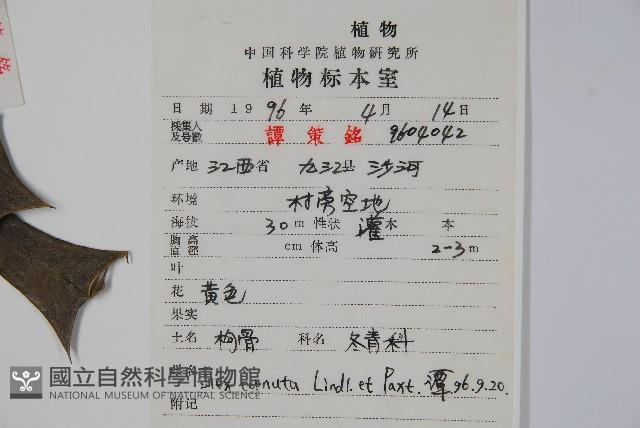 植物
中国科学院植物研究所
植物标本室
日期 1996年 4月 14日
採集人及号數 譚策銘 9604042
产地 江西省 九江县 沙河
环境 村旁空地
海拔 30m 性状 灌木 本
胸高直徑 cm 体高 2-3m
叶
花 黄色
果实
土名 枸骨 科名 冬青科
Ilex cornuta Lindl. et Paxt. 譚 96.9.20.
附记
國立自然科學博物館
NATIONAL MUSEUM OF NATURAL SCIENCE